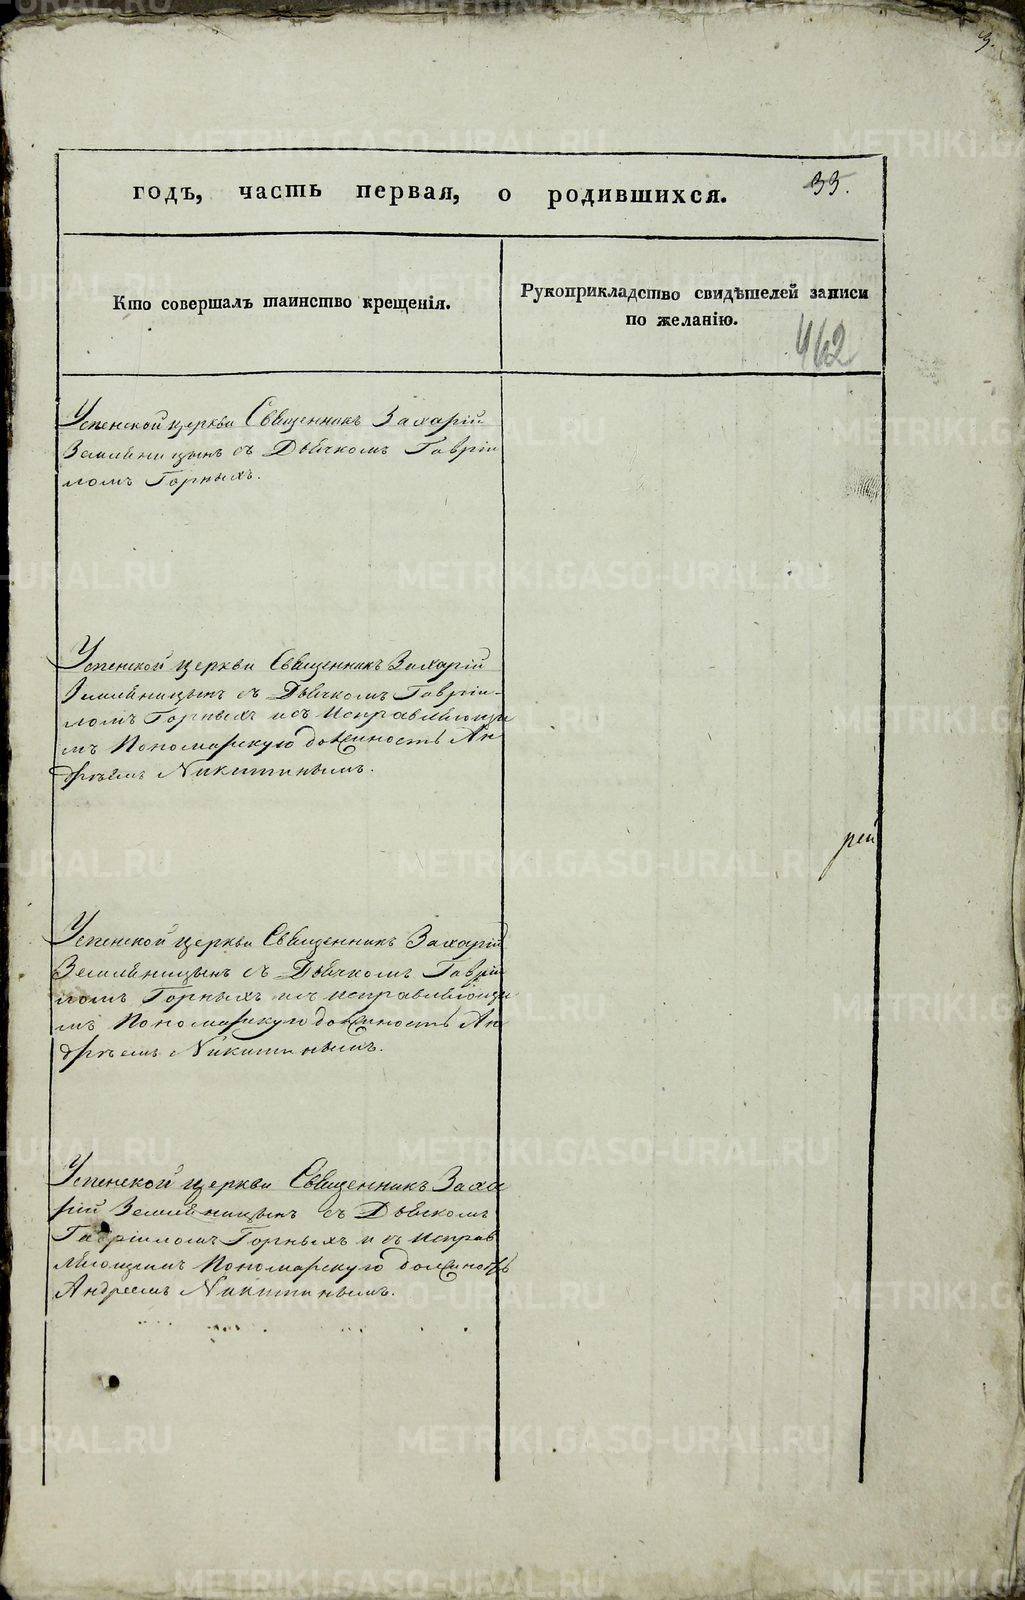 3.
годъ, часть первая, о родившихся. 33.
Кто совершалъ таинство крещенія.
Рукоприкладство свидѣтелей записи
по желанію.
462
Успенской церкви Священникъ Захарій
Земляницынъ съ Дьячкомъ Гаврiи
ломъ Горныхъ.
Успенской церкви Священникъ Захарій
Земляницынъ съ Дьячкомъ Гаврiи-
ломъ Горныхъ и съ исправляющи
мъ Пономарскую должность Ан
дрѣемъ Никитинымъ.
рей
Успенской церкви Священникъ Захарій
Земляницынъ съ Дьячкомъ Гаврiи
ломъ Горныхъ и съ исправляющи
мъ Пономарскую должность Ан
дрѣемъ Никитинымъ.
Успенской церкви Священникъ Заха
рій Земляницынъ съ Дьячкомъ
Гавріиломъ Горныхъ и съ исправ
ляющимъ Пономарскую должность
Андреемъ Никитинымъ.
METRIKI.GASO-URAL.RU